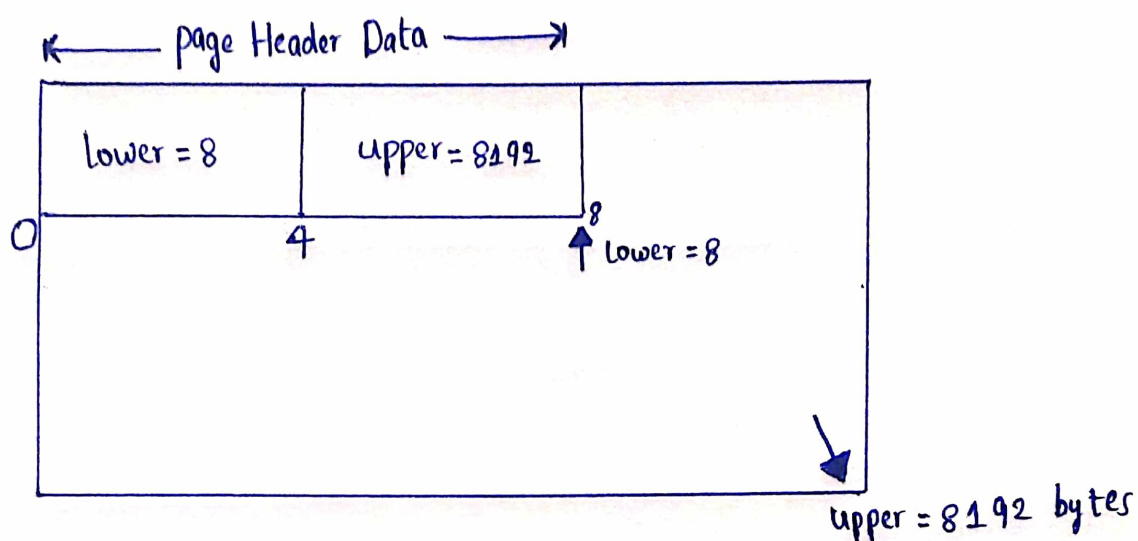 page Header Data
lower = 8
upper = 8192
0
4
8
lower = 8
upper = 8192 bytes